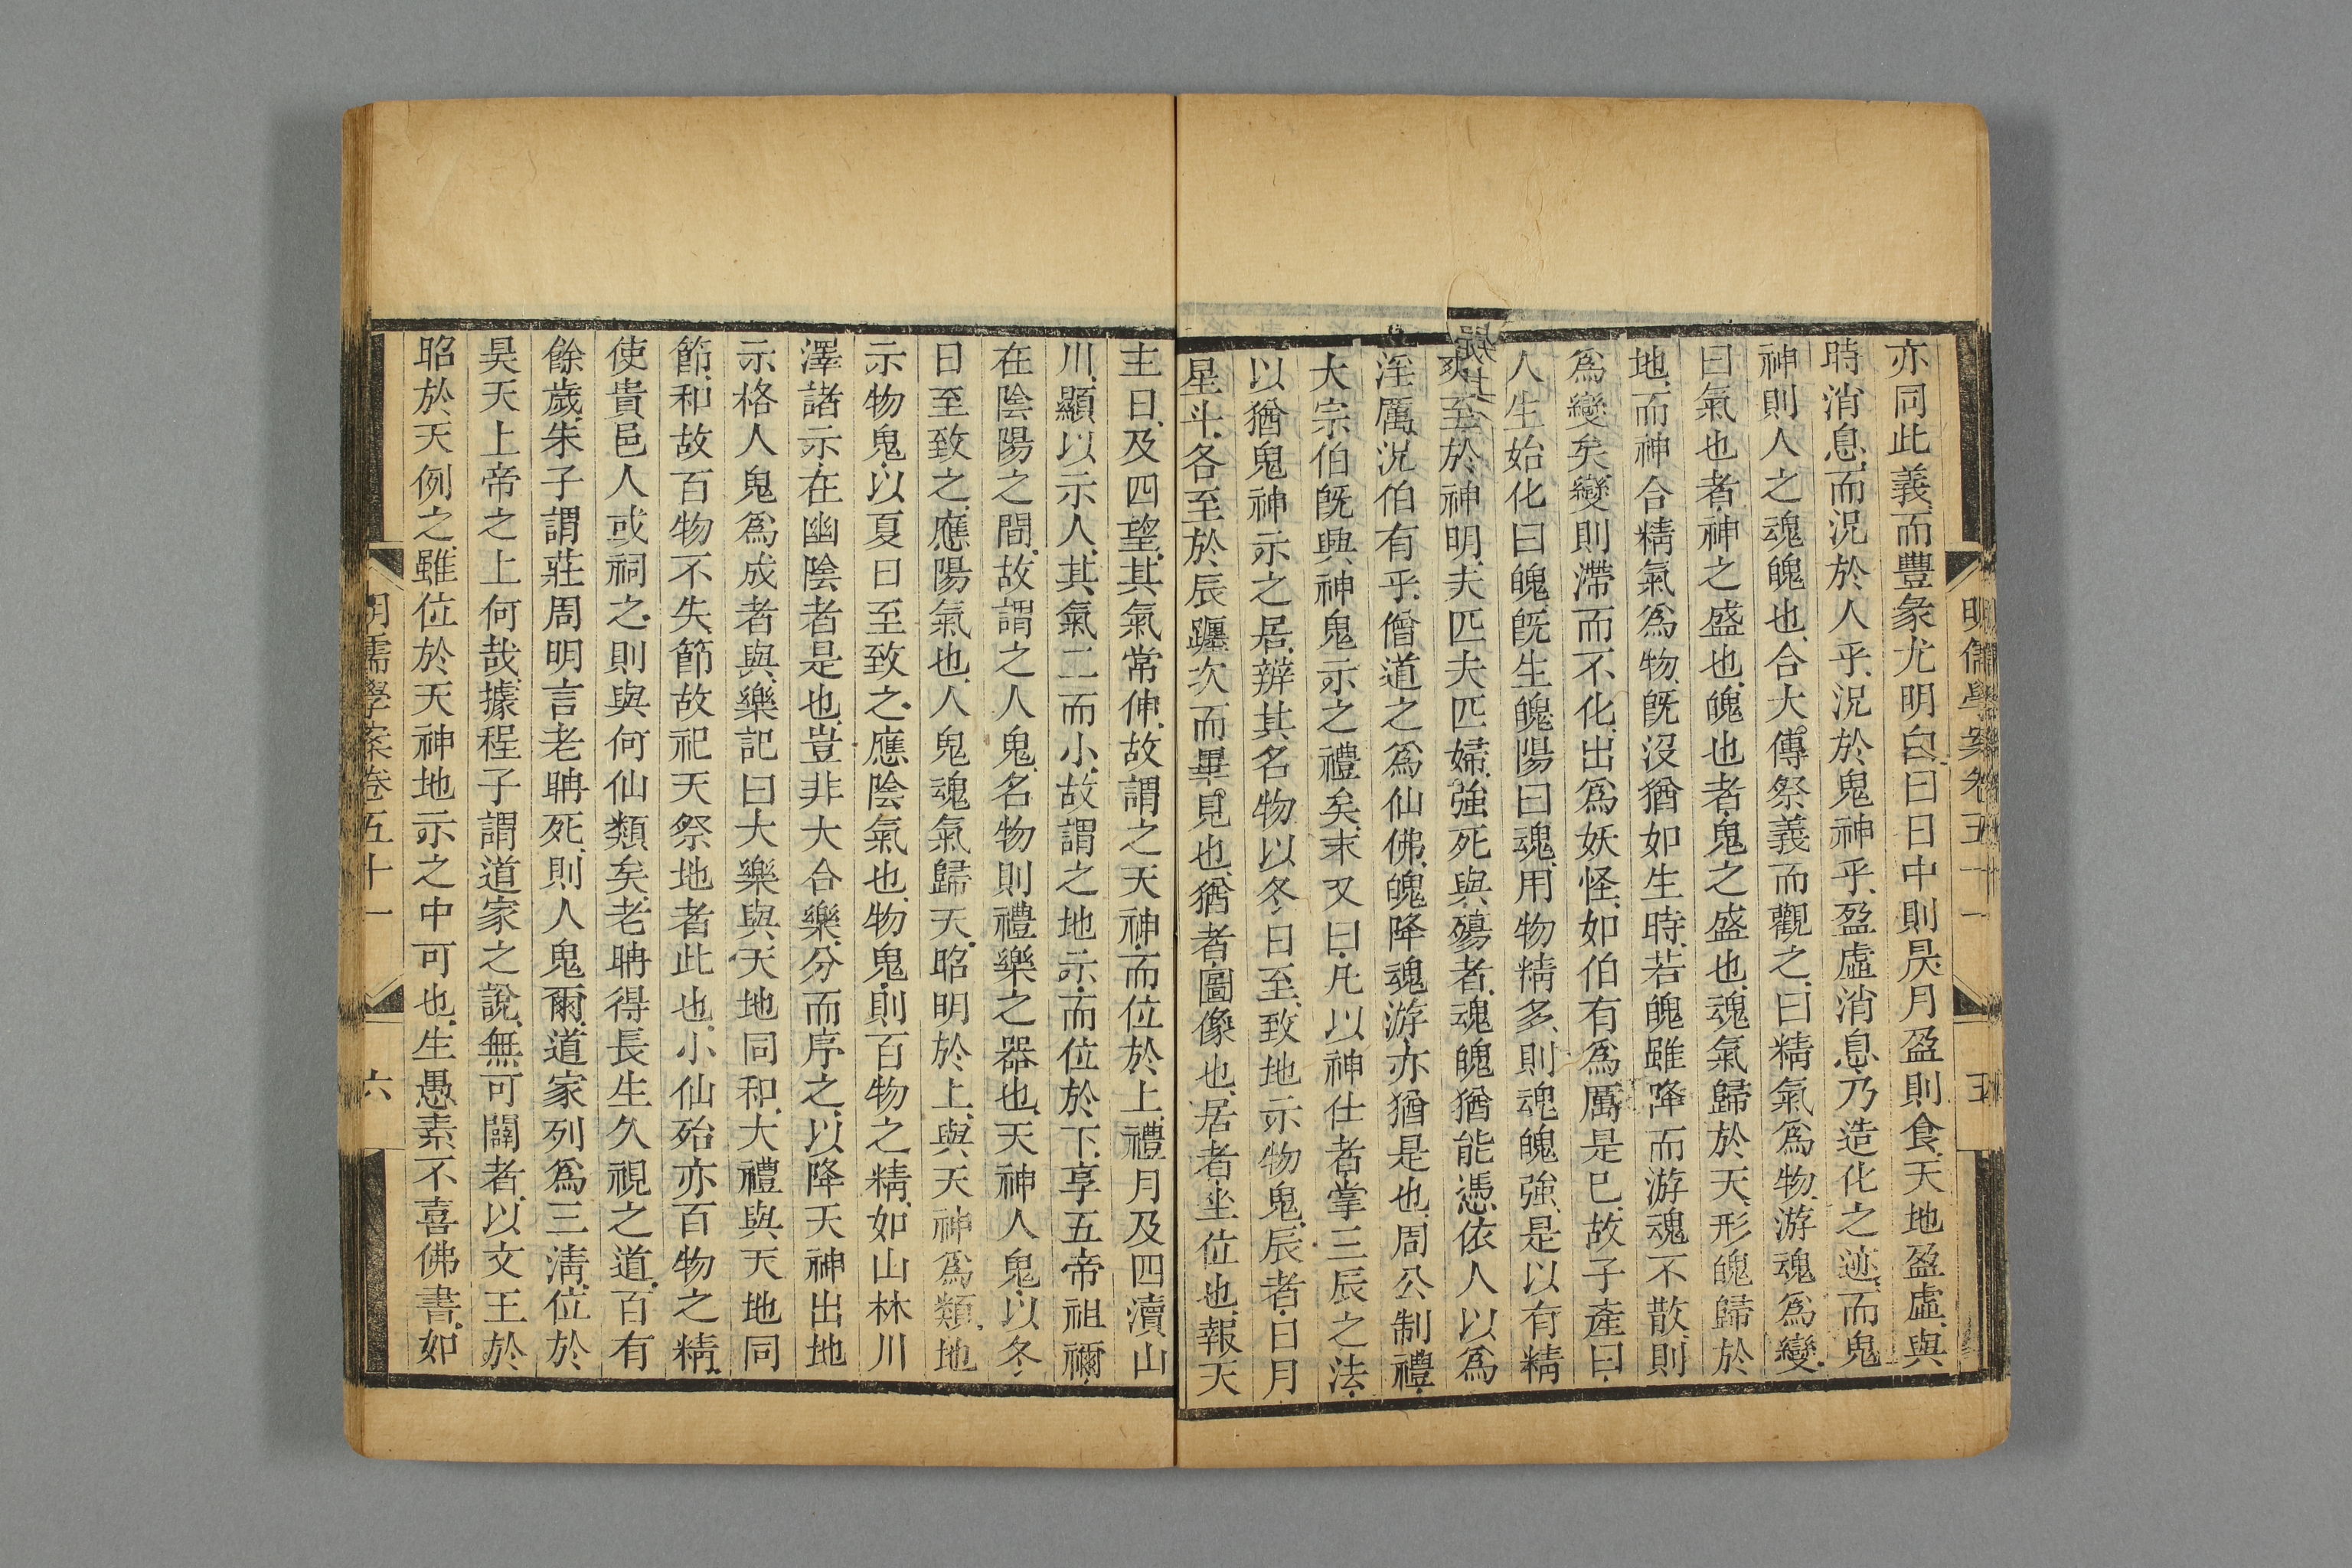 亦同此義、而豐彖尤明白、曰日中則昃、月盈則食、天地盈虛、與
時消息、而況於人乎、況於鬼神乎、盈虛消息、乃造化之迹、而鬼
神則人之魂魄也、合大傳祭義而觀之、曰精氣爲物、游魂爲變、
曰氣也者、神之盛也、魄也者、鬼之盛也、魂氣歸於天、形魄歸於
地、而神合精氣爲物、旣沒猶如生時、若魄雖降而游魂不散、則
爲變矣、變則滯而不化、出爲妖怪、如伯有爲厲是已、故子產曰、
人生始化曰魄、旣生魄陽曰魂、用物精多、則魂魄強、是以有精
爽至於神明、夫匹夫匹婦、強死與殤者、魂魄猶能憑依人以爲
淫厲、況伯有乎、僧道之爲仙佛、魄降魂游亦猶是也、周公制禮、
大宗伯旣興神鬼示之禮矣、末又曰、凡以神仕者、掌三辰之法、
以猶鬼神示之居、辨其名物、以冬日至、致地示物鬼、辰者、日月
星斗、各至於辰躔次而畢見也、猶者、圖像也、居者、坐位也、報天
主日、及四望、其氣常伸、故謂之天神、而位於上、禮月及四瀆山
川、顯以示人、其氣二而小、故謂之地示、而位於下、享五帝祖禰、
在陰陽之間、故謂之人鬼、名物則禮樂之器也、天神人鬼、以冬
日至致之、應陽氣也、人鬼魂氣歸天、昭明於上、與天神爲類、地
示物鬼、以夏日至致之、應陰氣也、物鬼、則百物之精、如山林川
澤諸示、在幽陰者是也、豈非大合樂、分而序之、以降天神出地
示、格人鬼爲成者與、樂記曰、大樂與天地同和、大禮與天地同
節、和故百物不失、節故祀天祭地者此也、小仙殆亦百物之精、
使貴邑人或祠之、則與何仙類矣、老聃得長生久視之道、百有
餘歲、朱子謂莊周明言老聃死、則人鬼爾、道家列爲三淸、位於
昊天上帝之上何哉、據程子謂道家之說、無可闢者、以文王於
昭於天例之、雖位於天神地示之中可也、生愚素不喜佛書、如
明儒學案卷五十一
五
明儒學案卷五十一
六